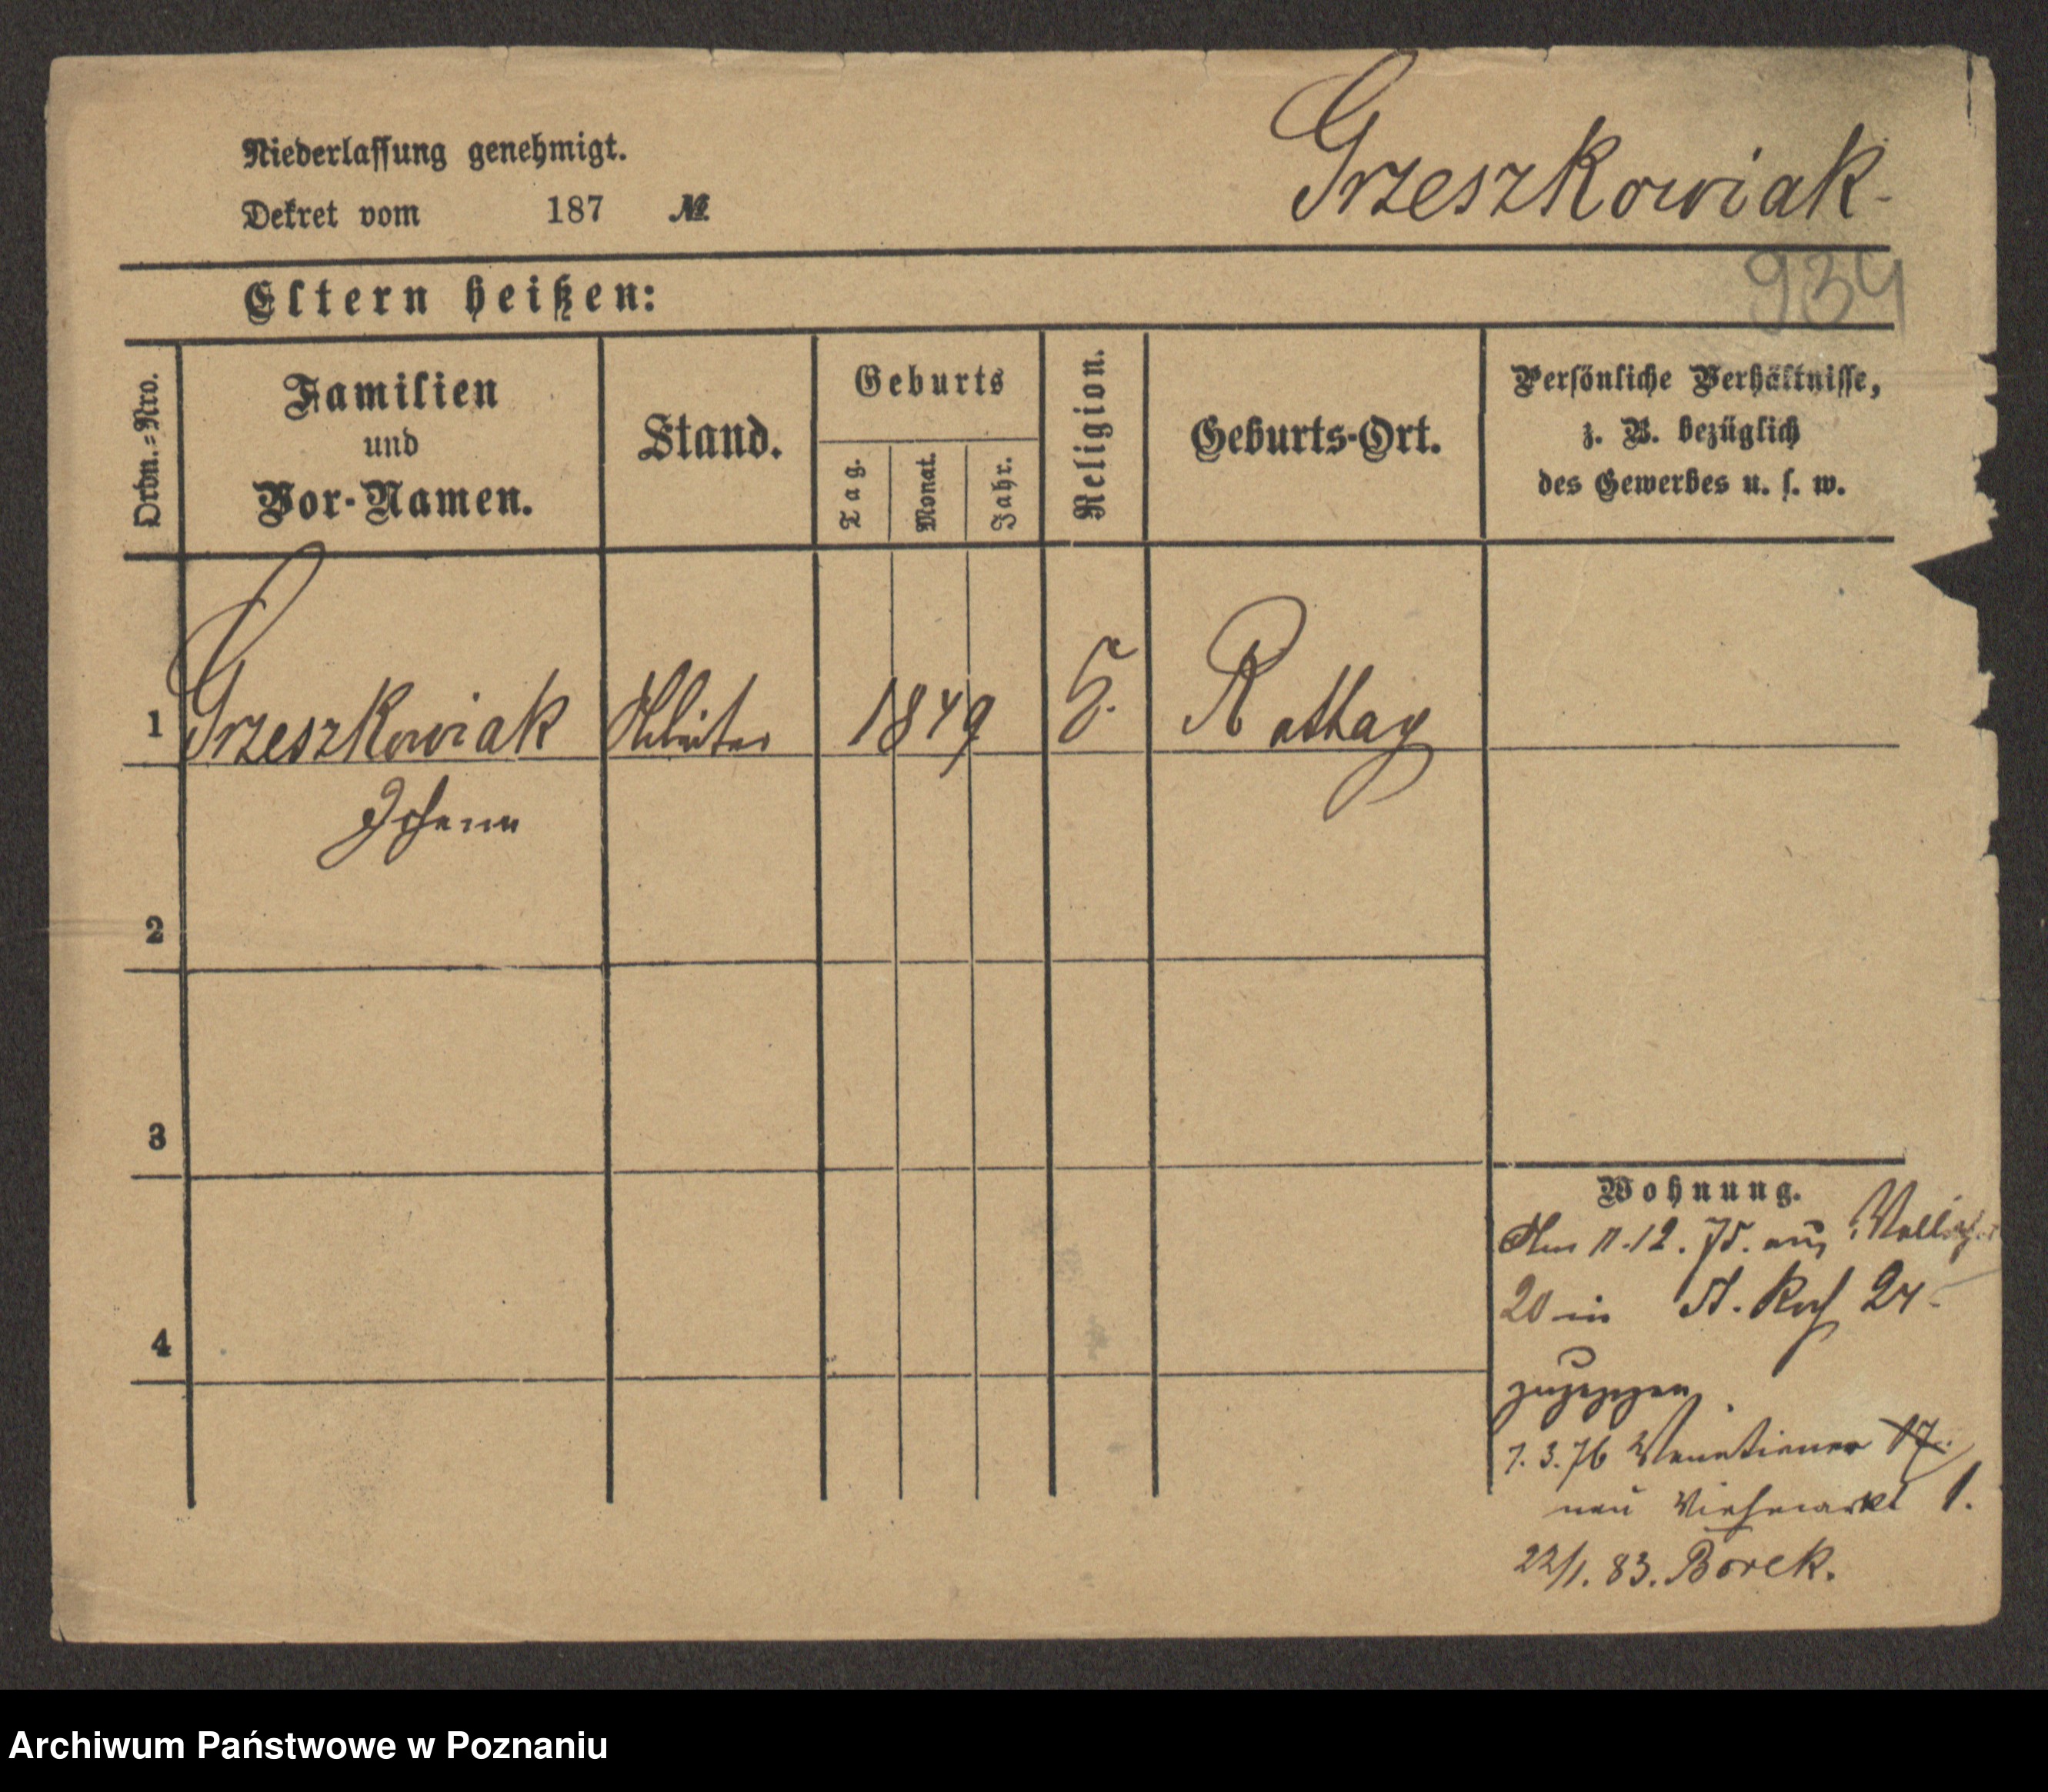 Niederlassung genehmigt.
Dekret vom 187 №
Grzeszkowiak
934
Eltern heißen:
Ordn.=Nro.
Familien
und
Vor-Namen.
Stand.
Geburts
Tag.
Monat.
Jahr.
Religion.
Geburts-Ort.
Persönliche Verhältnisse,
z. B. bezüglich
des Gewerbes u. s. w.
1 Grzeszkowiak Arbeiter 1849 Rattay
Johann
2
3
4
Wohnung.
11.12.75. aus
20 in St. Roch 24
zugezogen
7.3.76 Venetianer 17.
neu Viehmarkt 1.
22/1. 83. Borek.
Archiwum Państwowe w Poznaniu